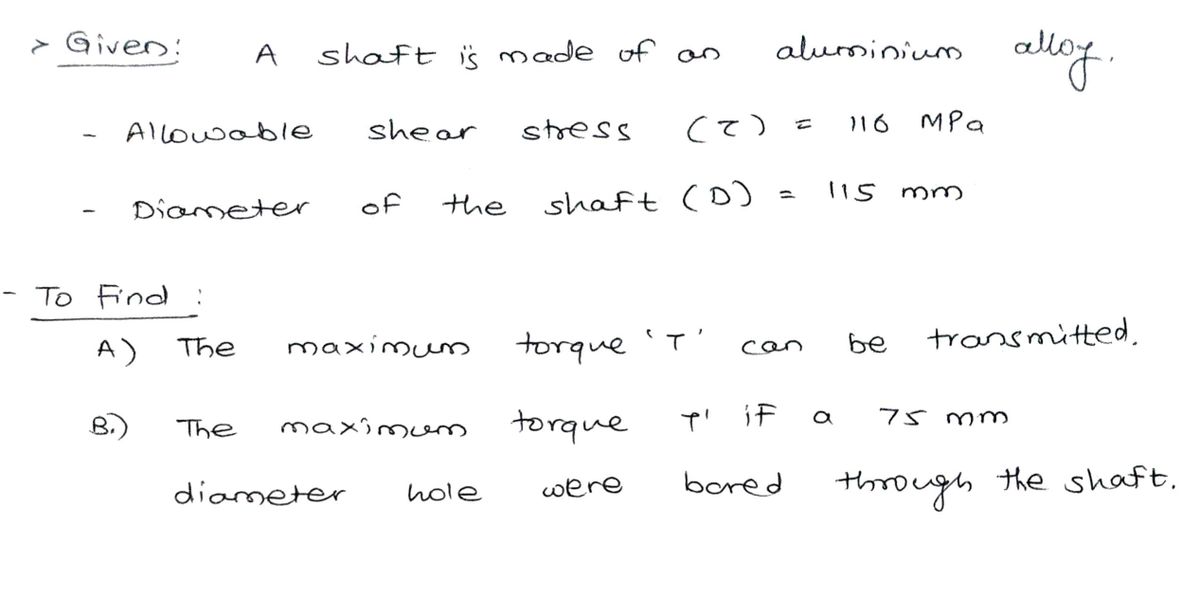 > Given: A shaft is made of an aluminium alloy.
- Allowable shear stress (τ) = 116 MPa
- Diameter of the shaft (D) = 115 mm
- To Find :
A) The maximum torque 'T' can be transmitted.
B.) The maximum torque T' if a 75 mm
diameter hole were bored through the shaft.